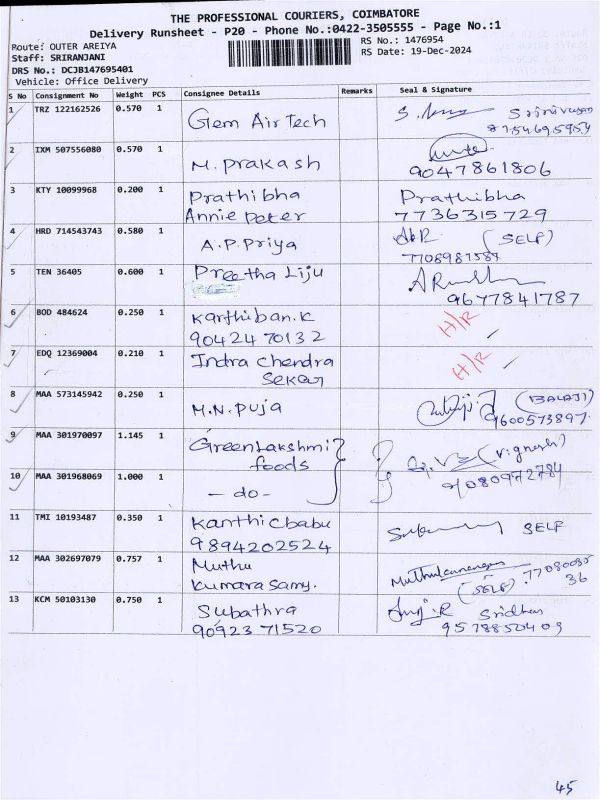 THE PROFESSIONAL COURIERS, COIMBATORE
Delivery Runsheet - P20 - Phone No.:0422-3505555 - Page No.:1
Route: OUTER AREIYA
RS No.: 1476954
Staff: SRIRANJANI
RS Date: 19-Dec-2024
DRS No.: DCJB147695401
Vehicle: Office Delivery
S No Consignment No Weight PCS Consignee Details Remarks Seal & Signature
1 TRZ 122162526 0.570 1 Gem Air Tech Srinivasan
8754695954
2 IXM 507556080 0.570 1 M. prakash
9047861806
3 KTY 10099968 0.200 1 Prathibha Prathibha
Annie peter 7736315729
4 HRD 714543743 0.580 1 A.P.Priya (SELF)
5 TEN 36405 0.600 1 Preetha Liju
9677841787
6 BOD 484624 0.250 1 Karthiban.K H/R
90424 70132
7 EDQ 12369004 0.210 1 Indra chendra H/R
Sekar
8 MAA 573145942 0.250 1 M.N. Puja (BALAJI)
9600573897
9 MAA 301970097 1.145 1 Green Lakshmi (Vignesh)
foods 9080972784
10 MAA 301968069 1.000 1 - do -
11 TMI 10193487 0.350 1 Kanthicbabu SELF
9894202524
12 MAA 302697079 0.757 1 Muthu
Kumara Samy. (SELF) 77080035
36
13 KCM 50103130 0.750 1 Subathra Sridhar
90923 71520 9578850409
45